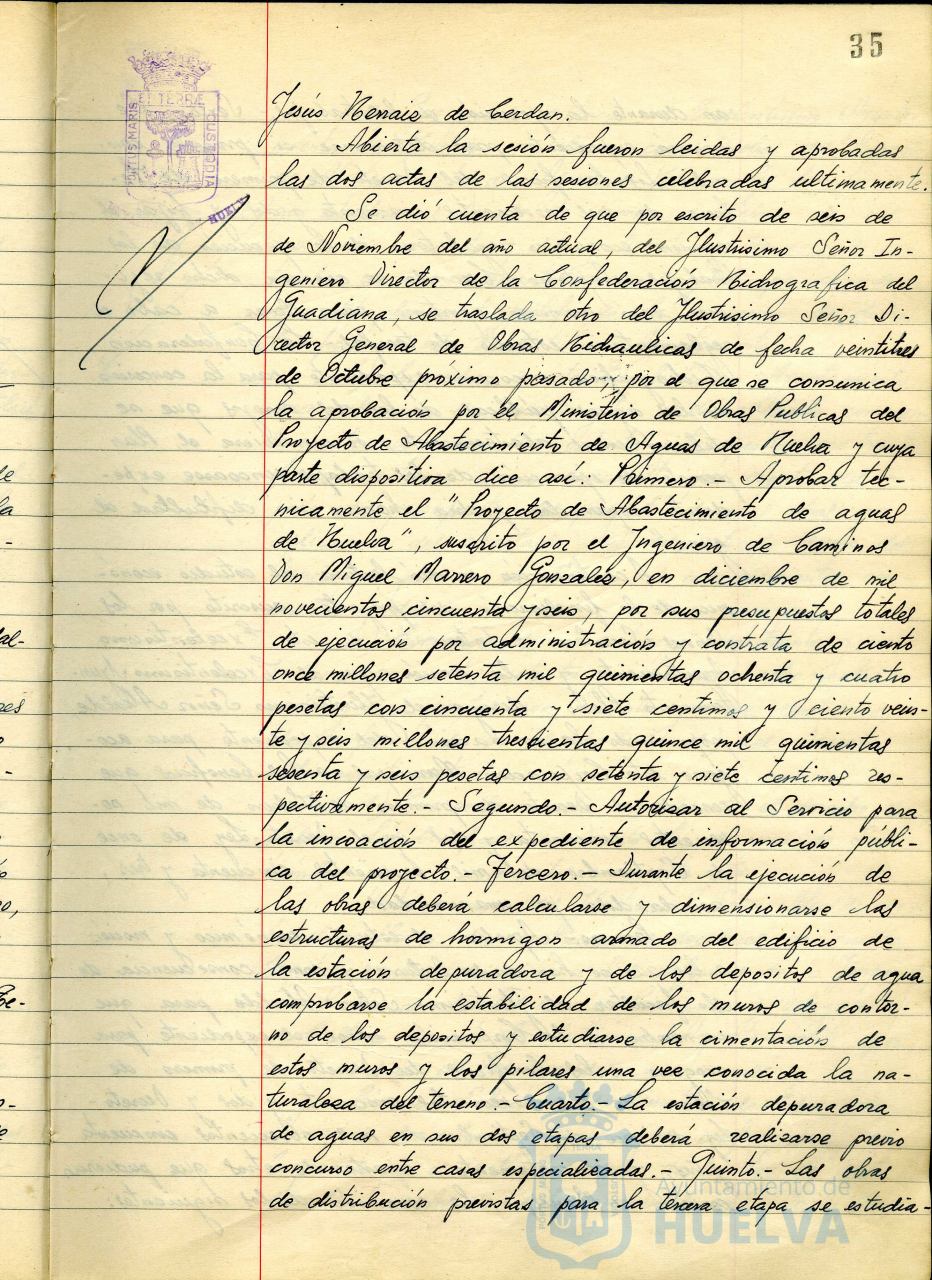 35
ET TERRÆ
PORTUS MARIS
CUSTODIA
HUELVA
Jesús Henaiz de Cerdan.
Abierta la sesión fueron leidas y aprobadas
las dos actas de las sesiones celebradas ultimamente.
Se dió cuenta de que por escrito de seis de
de Noviembre del año actual, del Ilustrisimo Señor In-
geniero Director de la Confederación Hidrografica del
Guadiana, se traslada otro del Ilustrisimo Señor Di-
rector General de Obras Hidraulicas de fecha veintitres
de Octubre proximo pasado, y por el que se comunica
la aprobación por el Ministerio de Obras Publicas del
Proyecto de Abastecimiento de Aguas de Huelva y cuya
parte dispositiva dice así: Primero.- Aprobar tec-
nicamente el "Proyecto de Abastecimiento de aguas
de Huelva", suscrito por el Ingeniero de Caminos
Don Miguel Marrero Gonzalez, en diciembre de mil
novecientos cincuenta y seis, por sus presupuestos totales
de ejecución por administración y contrata de ciento
once millones setenta mil quinientas ochenta y cuatro
pesetas con cincuenta y siete centimos y ciento vein-
te y seis millones trescientas quince mil quinientas
sesenta y seis pesetas con setenta y siete centimos res-
pectivamente.- Segundo.- Autorizar al Servicio para
la incoación del expediente de información públi-
ca del proyecto.- Tercero.- Durante la ejecución de
las obras deberá calcularse y dimensionarse las
estructuras de hormigon armado del edificio de
la estación depuradora y de los depositos de agua
comprobarse la estabilidad de los muros de contor-
no de los depositos y estudiarse la cimentación de
estos muros y los pilares una vez conocida la na-
turaleza del terreno.- Cuarto.- La estación depuradora
de aguas en sus dos etapas deberá realizarse previo
concurso entre casas especializadas.- Quinto.- Las obras
de distribución previstas para la tercera etapa se estudia-
Ayuntamiento de
HUELVA